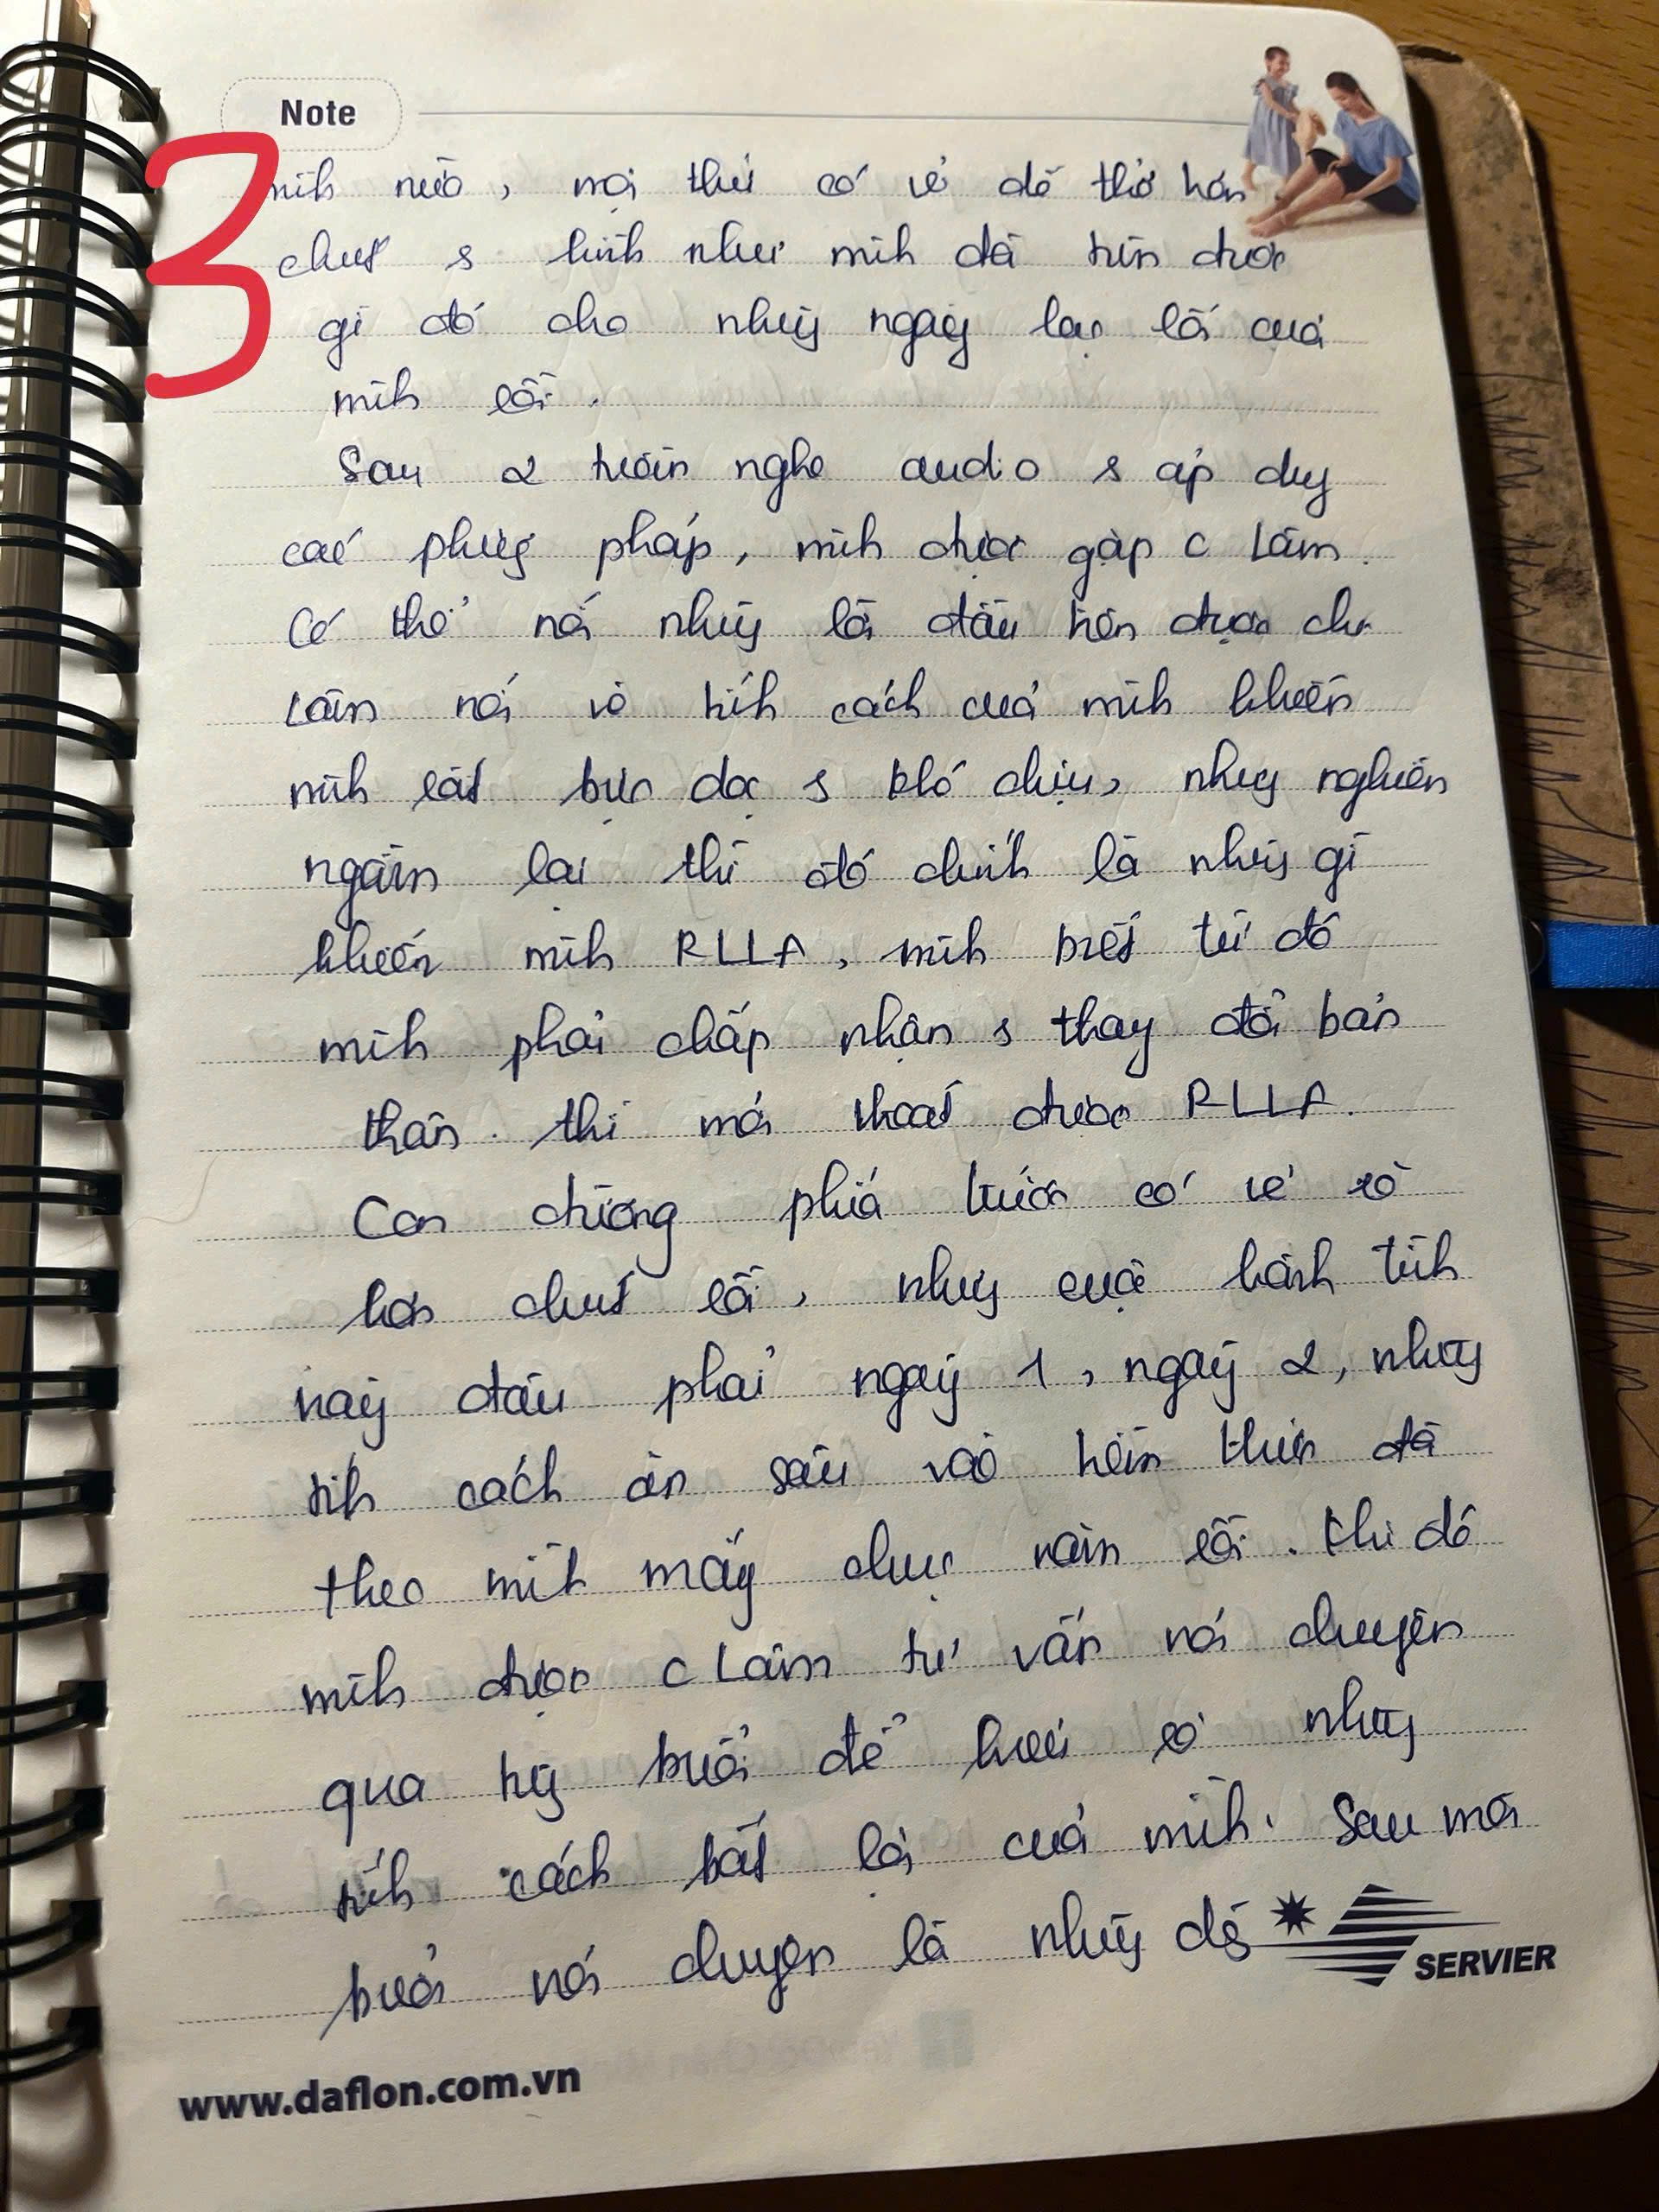 Note
3
mình nữa, mọi thứ có vẻ dễ thở hơn
chút & hình như mình đã tìm được
gì đó cho những ngày lạc lối của
mình rồi.
Sau 2 tuần nghe audio & áp dụng
các phương pháp, mình được gặp c Lâm.
Có thể nói những lời đầu tiên được chị
Lâm nói về tính cách của mình khiến
mình rất bực dọc & khó chịu, nhưng nghiền
ngẫm lại thì đó chính là những gì
khiến mình RLLA, mình biết từ đó
mình phải chấp nhận & thay đổi bản
thân thì mới thoát được RLLA.
Con đường phía trước có vẻ rõ
hơn chút rồi, nhưng cuộc hành trình
này đâu phải ngày 1, ngày 2, những
tính cách ăn sâu vào tiềm thức đã
theo mình mấy chục năm rồi. Khi đó
mình được c Lâm tư vấn nói chuyện
qua từng buổi để hiểu rõ những
tính cách bất lợi của mình. Sau mỗi
buổi nói chuyện là những
SERVIER
www.daflon.com.vn